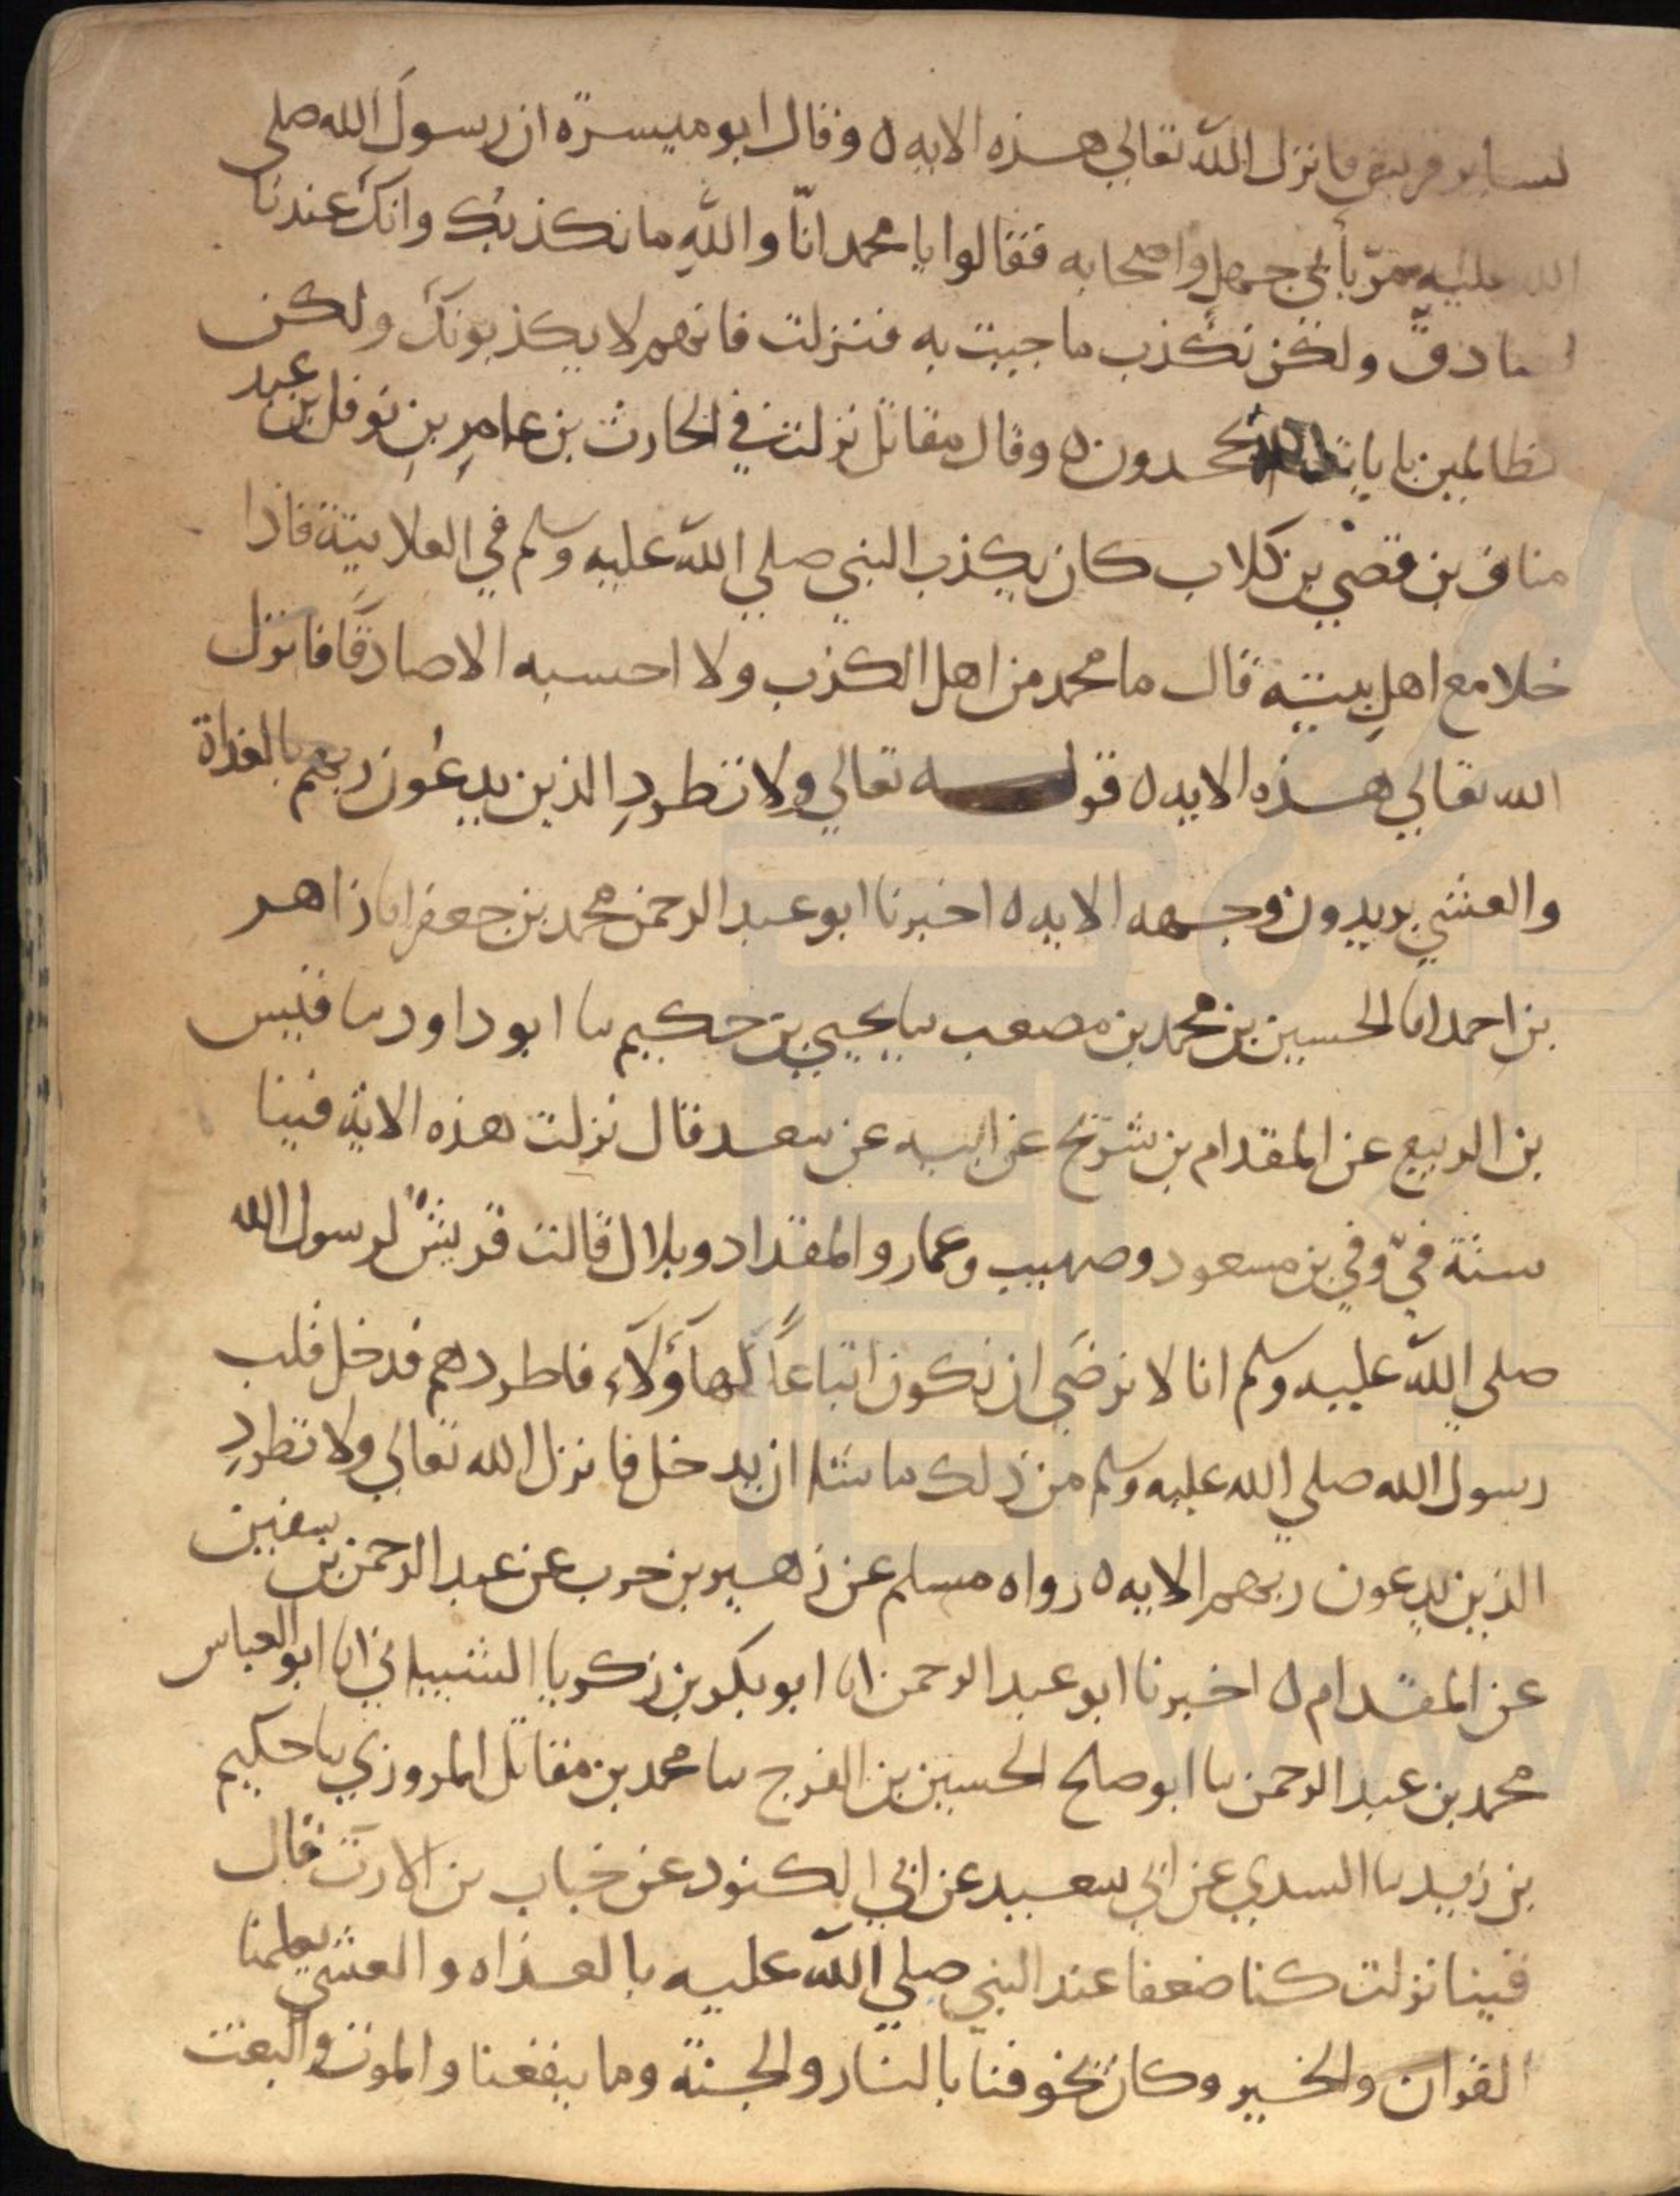 لساير قريش فانزل الله تعالي هذه الايه ٥ وقال ابو ميسرة ان رسول الله صلي
الله عليه مرّ بأبي جهل واصحابه فقالوا يا محمد انّا والله ما نكذبك وانك عندنا
لصادق ولكن نكذب ما جيت به فنزلت فانهم لا يكذبونك ولكن
الظالمين بايات الله يجحدون ٥ وقال مقاتل نزلت في الحارث بن عامر بن نوفل بن عبد
مناف بن قصي بن كلاب كان يكذب النبي صلي الله عليه وسلم في العلانية فاذا
خلا مع اهل بيته قال ما محمد من اهل الكذب ولا احسبه الا صادقا فانزل
الله تعالي هذه الايه ٥ قوله تعالي ولا تطرد الذين يدعون ربهم بالغداة
والعشي يريدون وجهه الايه ٥ اخبرنا ابو عبد الرحمن محمد بن جعفر انا زاهر
بن احمد انا الحسين بن محمد بن مصعب نا يحيي بن حكيم نا ابو داود نا قيس
بن الربيع عن المقدام بن شريح عن ابيه عن سعد قال نزلت هذه الاية فينا
ستة فيّ وفي بن مسعود وصهيب وعمار والمقداد وبلال قالت قريش لرسول الله
صلي الله عليه وسلم انا لا نرضي ان نكون اتباعاً لهاؤلآء فاطردهم فدخل قلب
رسول الله صلي الله عليه وسلم من ذلك ما شا ان يدخل فانزل الله تعالي ولا تطرد
الذين يدعون ربهم الايه ٥ رواه مسلم عن زهير بن حرب عن عبد الرحمن بن سفين
عن المقدام ٥ اخبرنا ابو عبد الرحمن انا ابو بكر بن زكريا الشيباني انا ابو العباس
محمد بن عبد الرحمن نا ابو صلح الحسين بن الفرج نا محمد بن مقاتل المروزي نا حكيم
بن زيد نا السدي عن ابي سعيد عن ابي الكنود عن خباب بن الارت قال
فينا نزلت كنا ضعفا عند النبي صلي الله عليه بالغداه والعشي يعلمنا
القران والخير وكان يخوفنا بالنار والجنة وما ينفعنا والموت والبعث